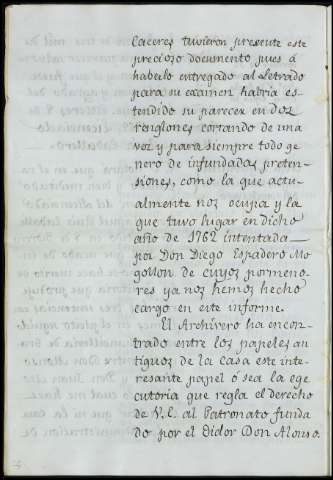 Caceres tuvieron presente este
precioso documento pues á
haberlo entregado al Letrado
para su examen habria es-
tendido su parecer en dos
renglones cortando de una
vez y para siempre todo ge
nero de infundadas preten-
siones, como la que actu-
almente nos ocupa y la
que tuvo lugar en dicho
año de 1762 intentada
por Don Diego Espadero Mo
gollon de cuyos pormeno-
res ya nos hemos hecho
cargo en este informe.
El Archivero ha encon-
trado entre los papeles an-
tiguos de la casa este inte-
resante papel ó sea la ege
cutoria que regla el derecho
de V.E. al Patronato funda
do por el Oidor Don Alonso.